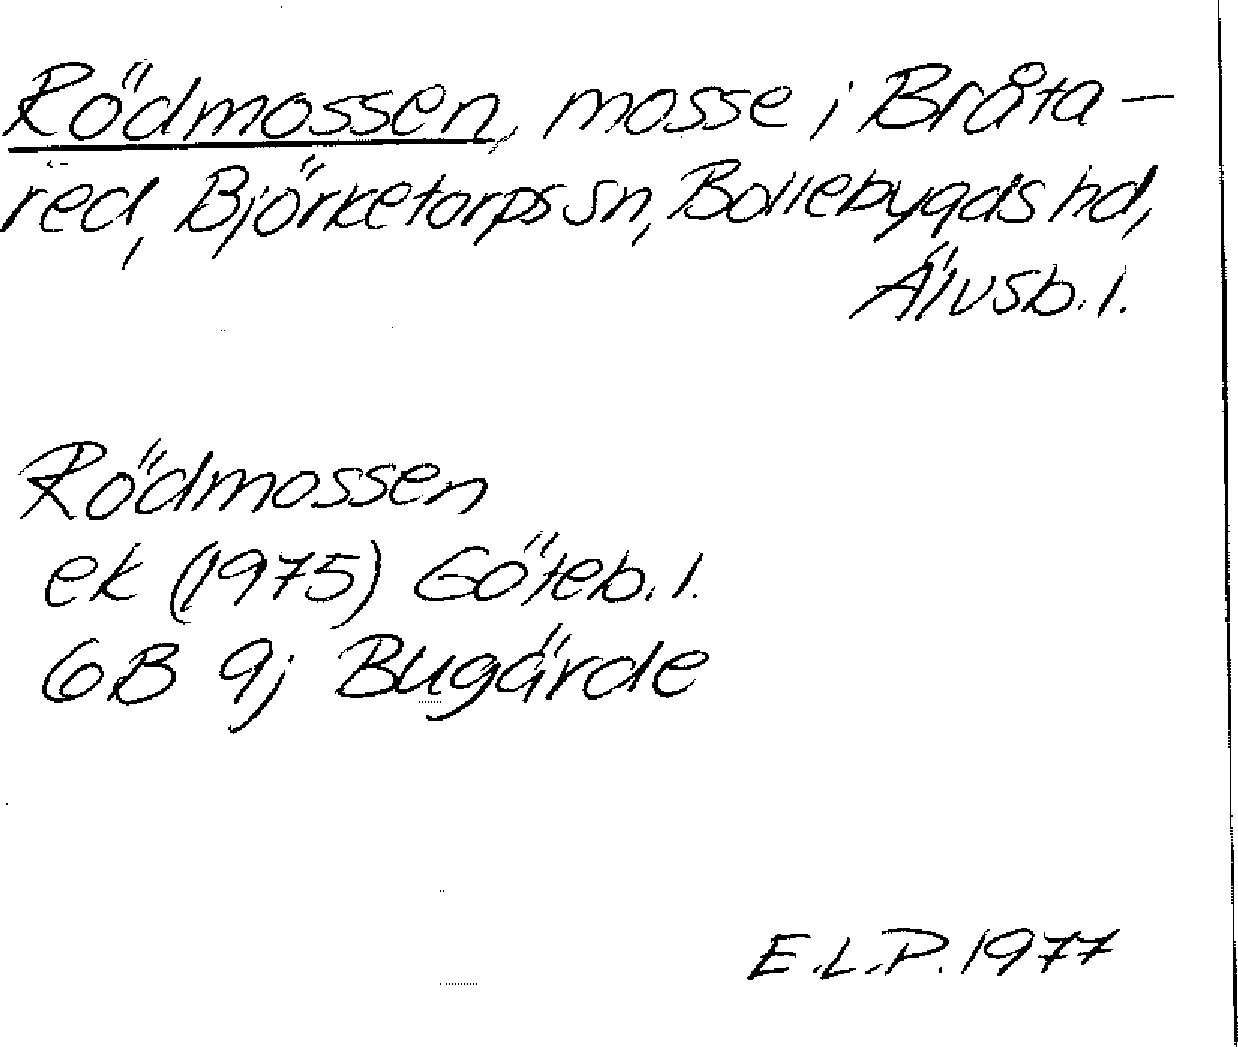 Rödmossen, mosse i Bråta-
red, Björketorps sn, Bollebygds hd,
Älvsb. l.
Rödmossen
ek (1975) Göteb. l.
6B 9j Bugärde
E.L.P. 1977